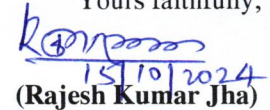 Yours faithfully,
15/10/2024
(Rajesh Kumar Jha)